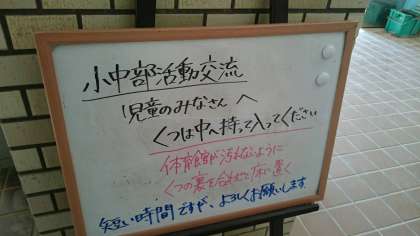 小中部活動交流
児童のみなさんへ
くつは中へ持って入ってください
体育館が汚れないように
くつの裏を合わせて床に置く
短い時間ですが、よろしくお願いします